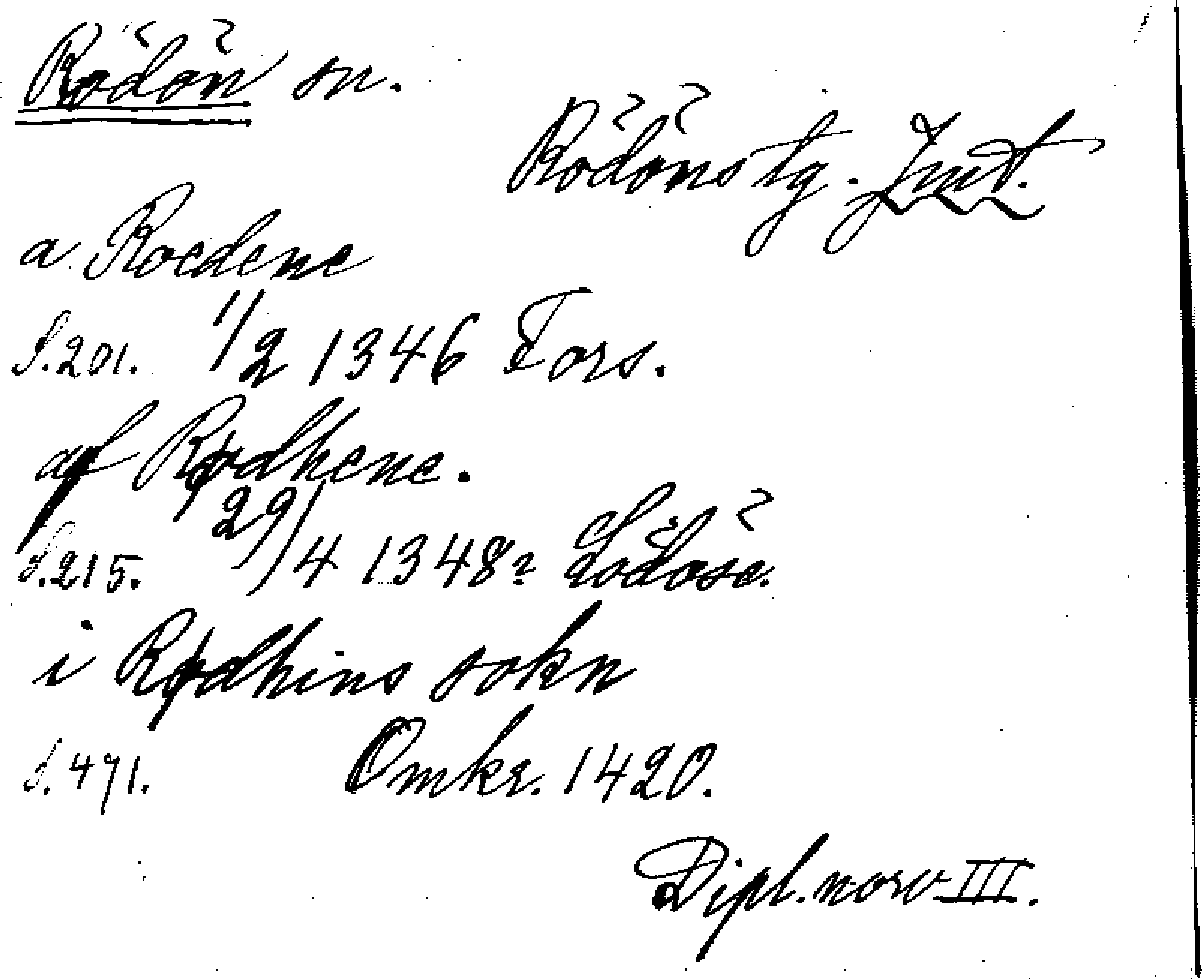 Rödön sn.
Rödöns tg. Jmt.
a Roedene
S. 201. 1/2 1346 Fors.
af Rødhene.
S. 215. 29/4 1348? Lödöse.
i Rødhins sokn
S. 471. Omkr. 1420.
Dipl. norv III.